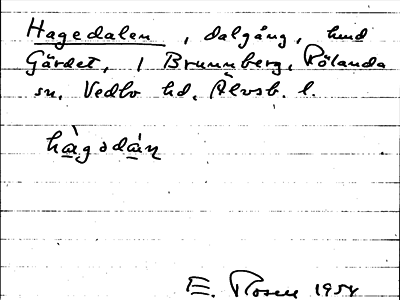 Hagedalen, dalgång, hmd
Gärdet, 1 Brunnberg, Rölanda
sn, Vedbo hd, Älvsb. l.
hàgsdán
E. Rosell 1954